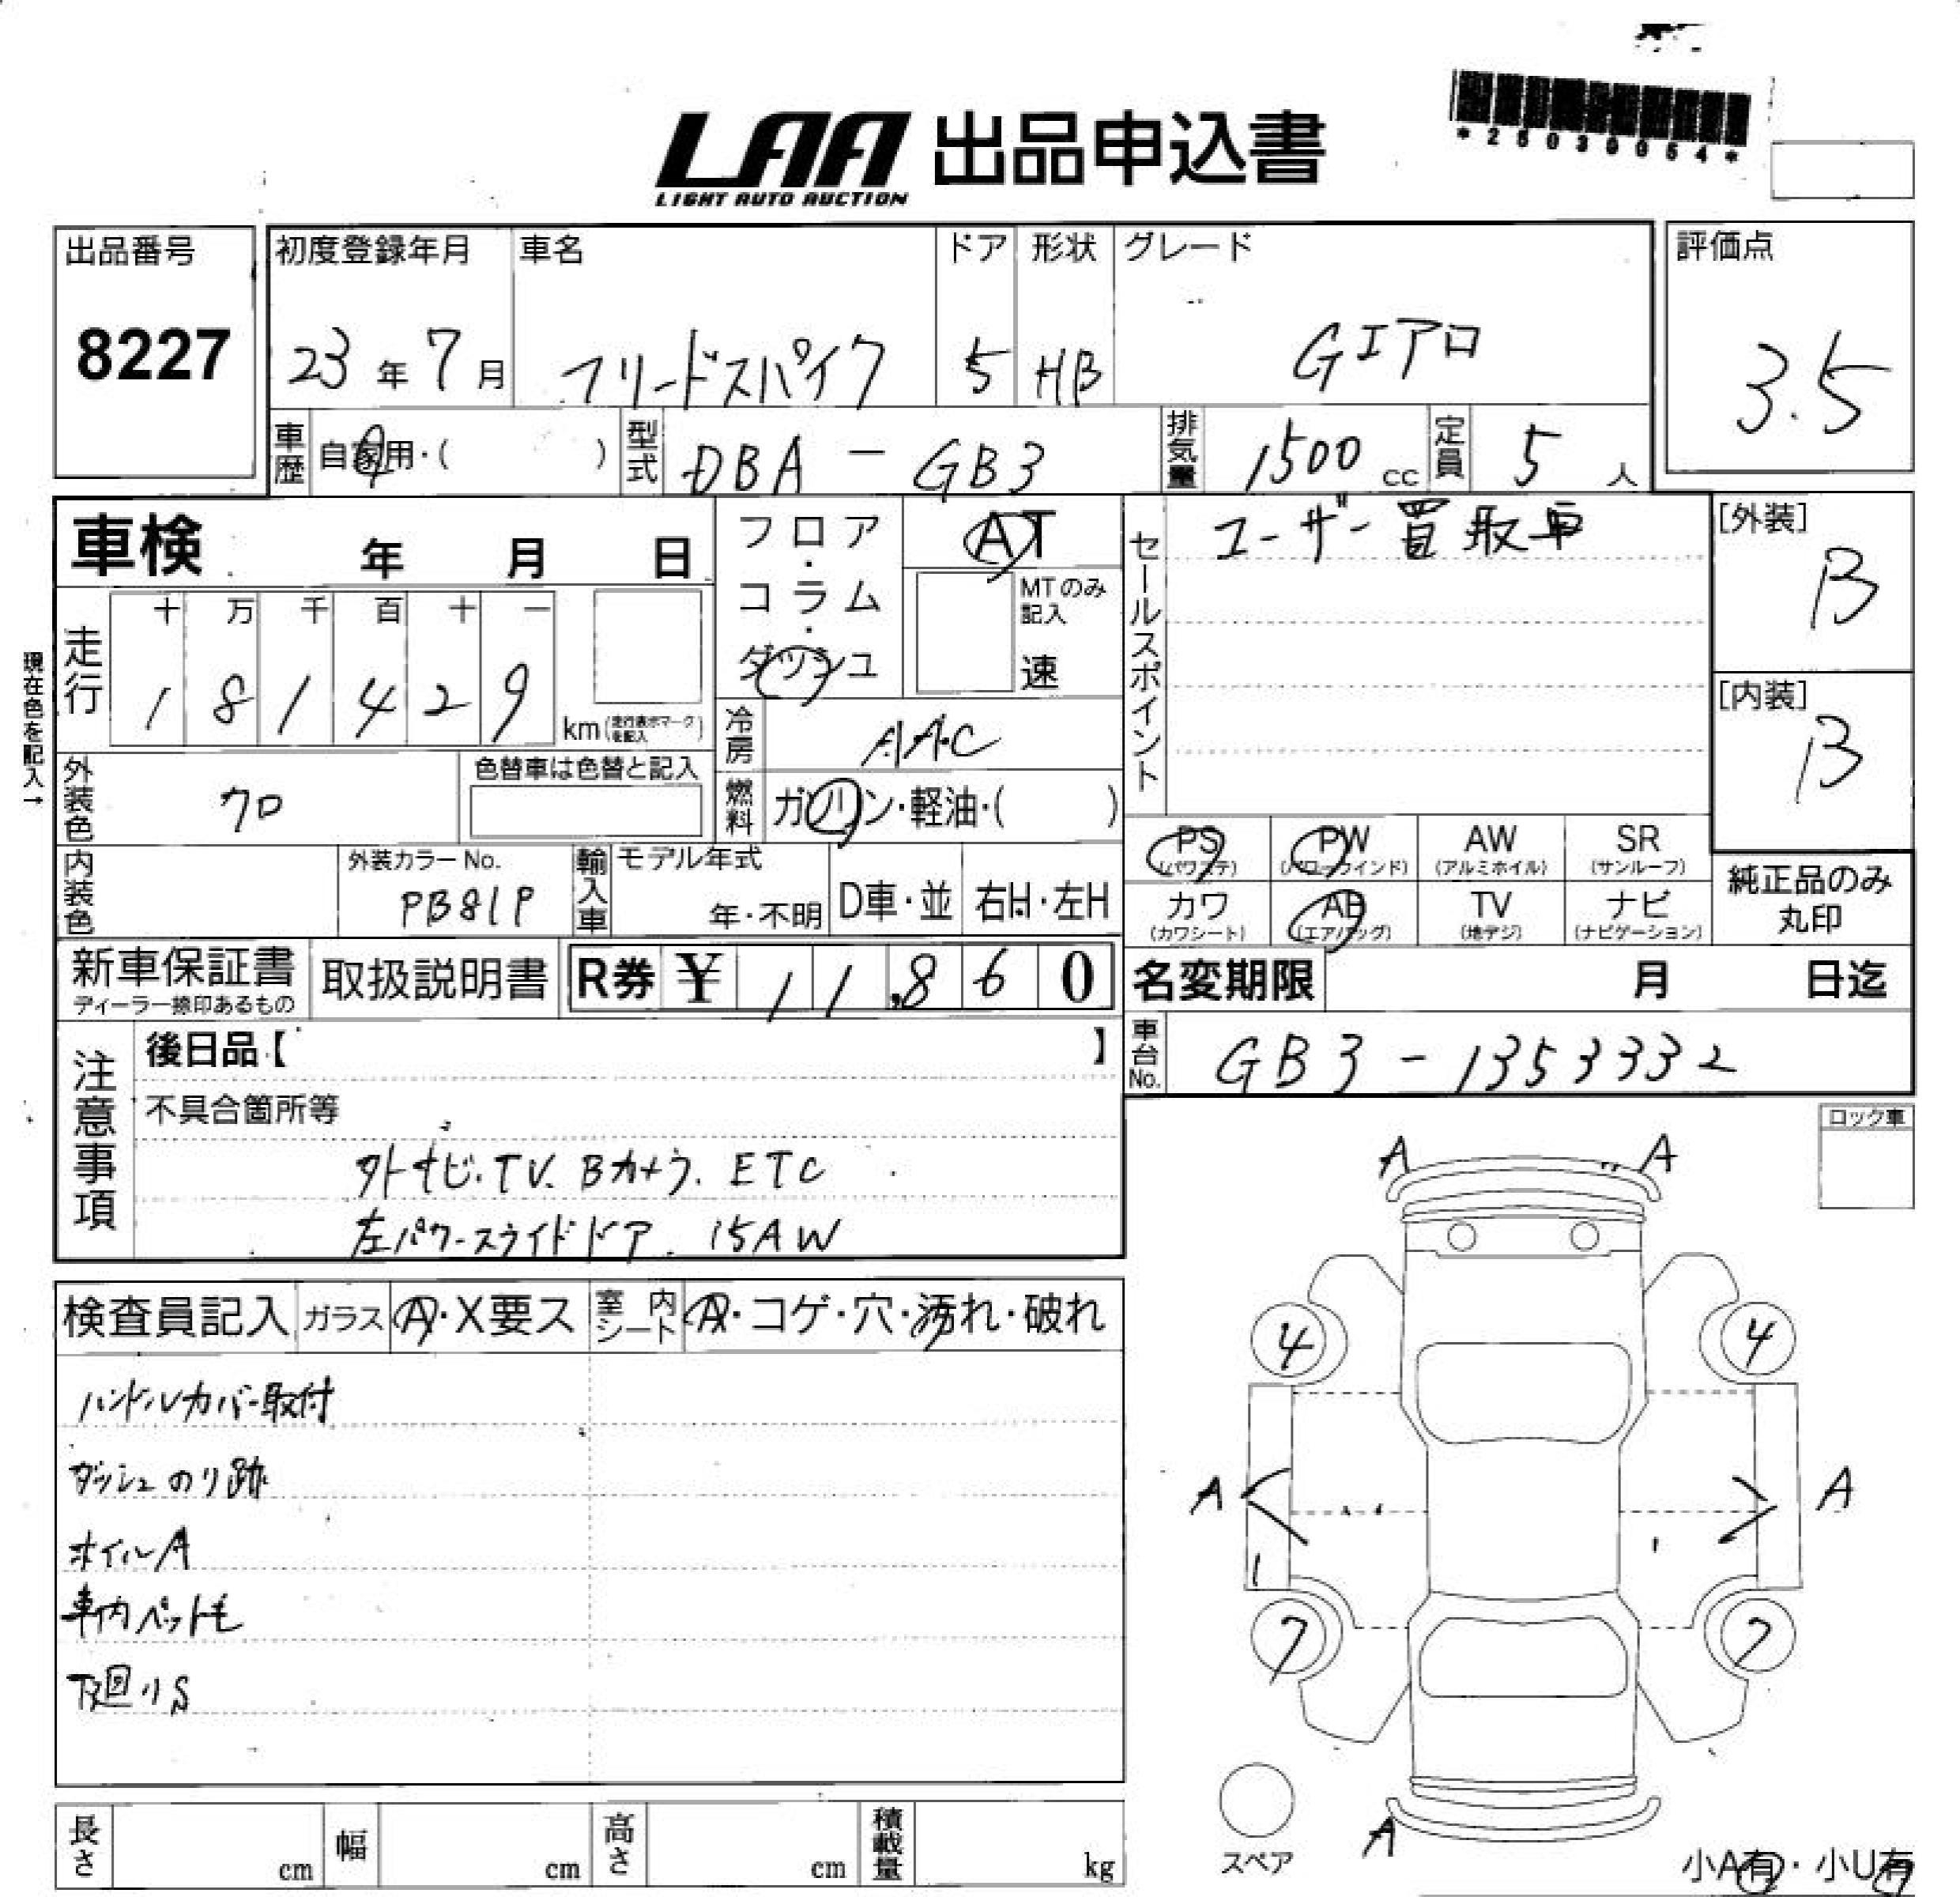 *25030054*
LAA 出品申込書
LIGHT AUTO AUCTION
出品番号 初度登録年月 車名 ドア 形状 グレード 評価点
8227 23年 7月 フリードスパイク 5 HB Gエアロ 3.5
車歴 自家用・( ) 型式 DBA-GB3 排気量 1500 cc 定員 5 人
車検 年 月 日
フロア・コラム・ダッシュ
AT
MTのみ記入
速
セールスポイント
ユーザー買取車
[外装]
B
[内装]
B
現在色を記入→
走行 十 万 千 百 十 一
1 8 1 4 2 9 km(走行表示マークを記入)
冷房 AAC
外装色 クロ 色替車は色替と記入
燃料 ガソリン・軽油・( )
内装色 外装カラーNo. PB81P 輸入車 モデル年式 年・不明 D車・並 右H・左H
PS (パワステ) PW (パワーウインド) AW (アルミホイル) SR (サンルーフ)
カワ (カワシート) AB (エアバッグ) TV (地デジ) ナビ (ナビゲーション)
純正品のみ丸印
新車保証書 ディーラー捺印あるもの 取扱説明書 R券 ¥ 11,860
名変期限 月 日迄
車台No. GB3-1353332
注意事項
後日品【 】
不具合箇所等
外ナビ.TV.Bカメラ.ETC
左パワースライドドア. 15AW
ロック車
検査員記入 ガラス A・X要ス 室内シート A・コゲ・穴・汚れ・破れ
ハンドルカバー取付
ダッシュのり跡
ホイルA
車内ペット毛
下廻りS
A A
4 4
A A
7 7
A
スペア
小A有・小U有
長さ cm 幅 cm 高さ cm 積載量 kg